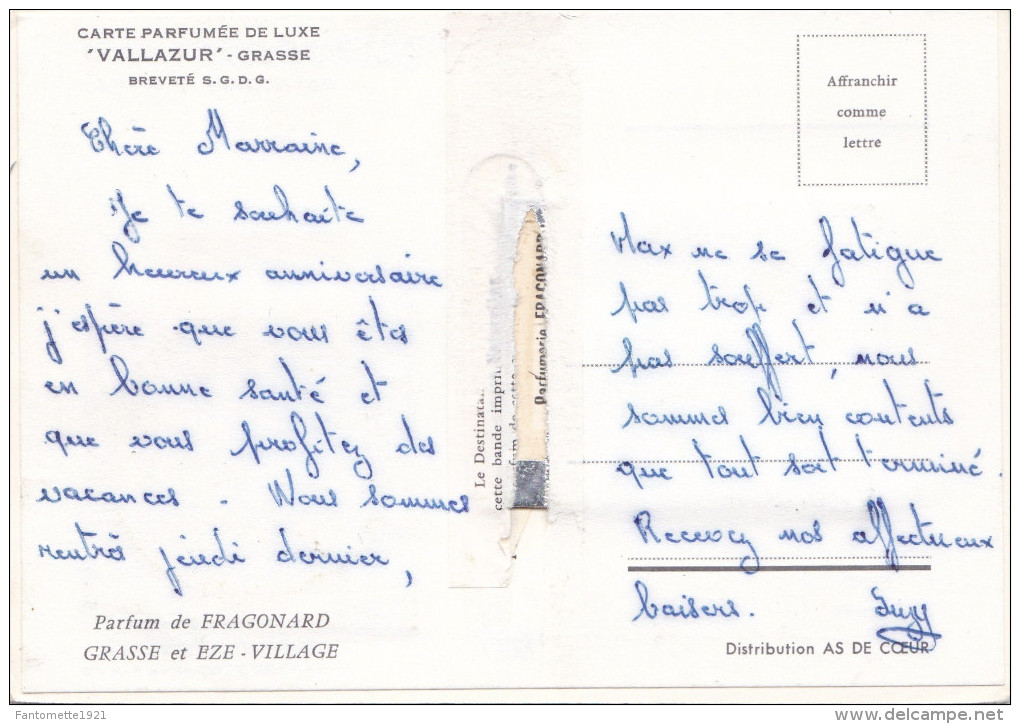 CARTE PARFUMÉE DE LUXE
'VALLAZUR' - GRASSE
BREVETÉ S.G.D.G.
Chère Marraine,
Je te souhaite
un heureux anniversaire
j'espère que vous êtes
en bonne santé et
que vous profitez des
vacances - Nous sommes
rentrés jeudi dernier,
Parfum de FRAGONARD
GRASSE et EZE - VILLAGE
Le Destinatai
cette bande imprim
fum de cette
Parfumerie FRAGONARD
Affranchir
comme
lettre
Max ne se fatigue
pas trop et n'a
pas souffert, nous
sommes bien contents
que tout soit terminé.
Recevez nos affectueux
baisers. Suzy
Distribution AS DE CŒUR
Fantomette1921
delcampe.net